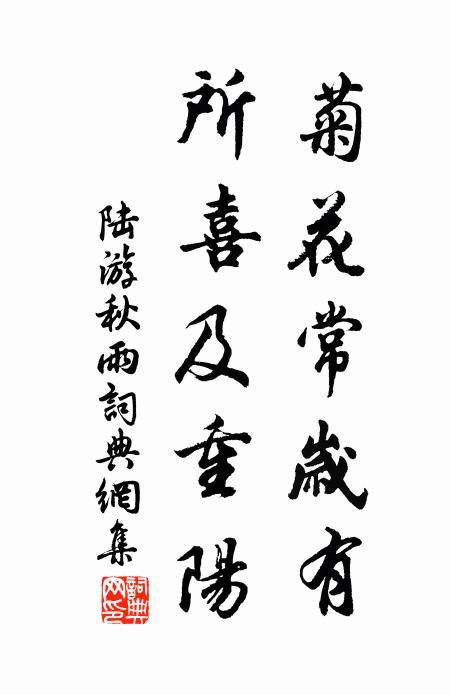 菊花常歲有
所喜及重陽
陆游秋雨詞典網集
詞典网印